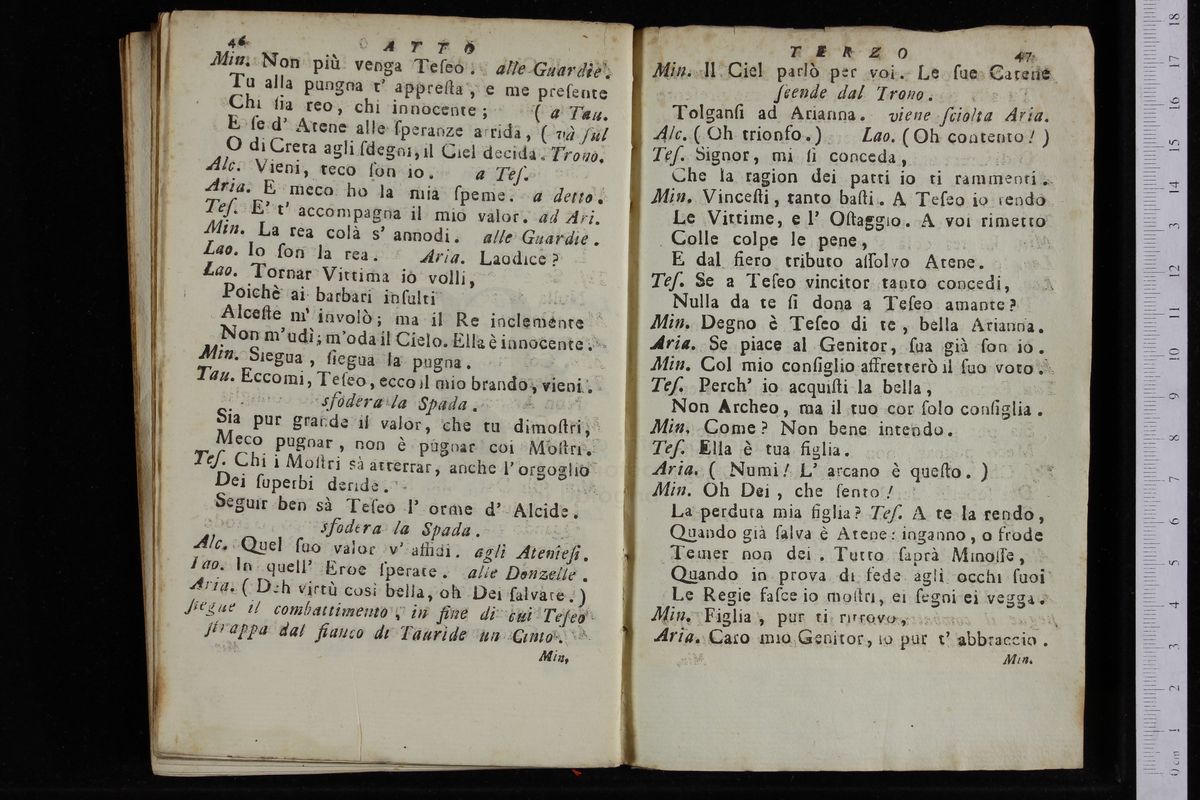 46 ATTO
Min. Non più venga Teſeo. alle Guardie.
Tu alla pungna t' appreſta, e me preſente
Chi ſia reo, chi innocente; ( a Tau.
E ſe d' Atene alle ſperanze arrida, ( và ſul
O di Creta agli ſdegni, il Ciel decida. Trono.
Alc. Vieni, teco ſon io. a Teſ.
Aria. E meco ho la mia ſpeme. a detto.
Teſ. E' t' accompagna il mio valor. ad Ari.
Min. La rea colà s' annodi. alle Guardie.
Lao. Io ſon la rea. Aria. Laodice?
Lao. Tornar Vittima io volli,
Poichè ai barbari inſulti
Alceſte m' involò; ma il Re inclemente
Non m'udì; m'oda il Cielo. Ella è innocente.
Min. Siegua, ſiegua la pugna.
Tau. Eccomi, Teſeo, ecco il mio brando, vieni.
sfodera la Spada.
Sia pur grande il valor, che tu dimoſtri,
Meco pugnar, non è pugnar coi Moſtri.
Teſ. Chi i Moſtri sà atterrar, anche l'orgoglio
Dei ſuperbi deride.
Seguir ben sà Teſeo l' orme d' Alcide.
sfodera la Spada.
Alc. Quel ſuo valor v' affidi. agli Atenieſi.
Lao. In quell' Eroe ſperate. alle Donzelle.
Aria. ( Deh virtù così bella, oh Dei ſalvate. )
ſiegue il combattimento, in fine di cui Teſeo
ſtrappa dal fianco di Tauride un Cinto.
Min.
TERZO 47
Min. Il Ciel parlò per voi. Le ſue Catene
ſcende dal Trono.
Tolganſi ad Arianna. viene ſciolta Aria.
Alc. ( Oh trionfo. ) Lao. ( Oh contento! )
Teſ. Signor, mi ſi conceda,
Che la ragion dei patti io ti rammenti.
Min. Vinceſti, tanto baſti. A Teſeo io rendo
Le Vittime, e l' Oſtaggio. A voi rimetto
Colle colpe le pene,
E dal fiero tributo aſſolvo Atene.
Teſ. Se a Teſeo vincitor tanto concedi,
Nulla da te ſi dona a Teſeo amante?
Min. Degno è Teſeo di te, bella Arianna.
Aria. Se piace al Genitor, ſua già ſon io.
Min. Col mio conſiglio affretterò il ſuo voto.
Teſ. Perch' io acquiſti la bella,
Non Archeo, ma il tuo cor ſolo conſiglia.
Min. Come? Non bene intendo.
Teſ. Ella è tua figlia.
Aria. ( Numi! L' arcano è queſto. )
Min. Oh Dei, che ſento!
La perduta mia figlia? Teſ. A te la rendo,
Quando già ſalva è Atene: inganno, o frode
Temer non dei. Tutto ſaprà Minoſſe,
Quando in prova di fede agli occhi ſuoi
Le Regie faſce io moſtri, ei ſegni ei vegga.
Min. Figlia, pur ti ritrovo,
Aria. Caro mio Genitor, io pur t' abbraccio.
Min.
0 cm 1 2 3 4 5 6 7 8 9 10 11 12 13 14 15 16 17 18